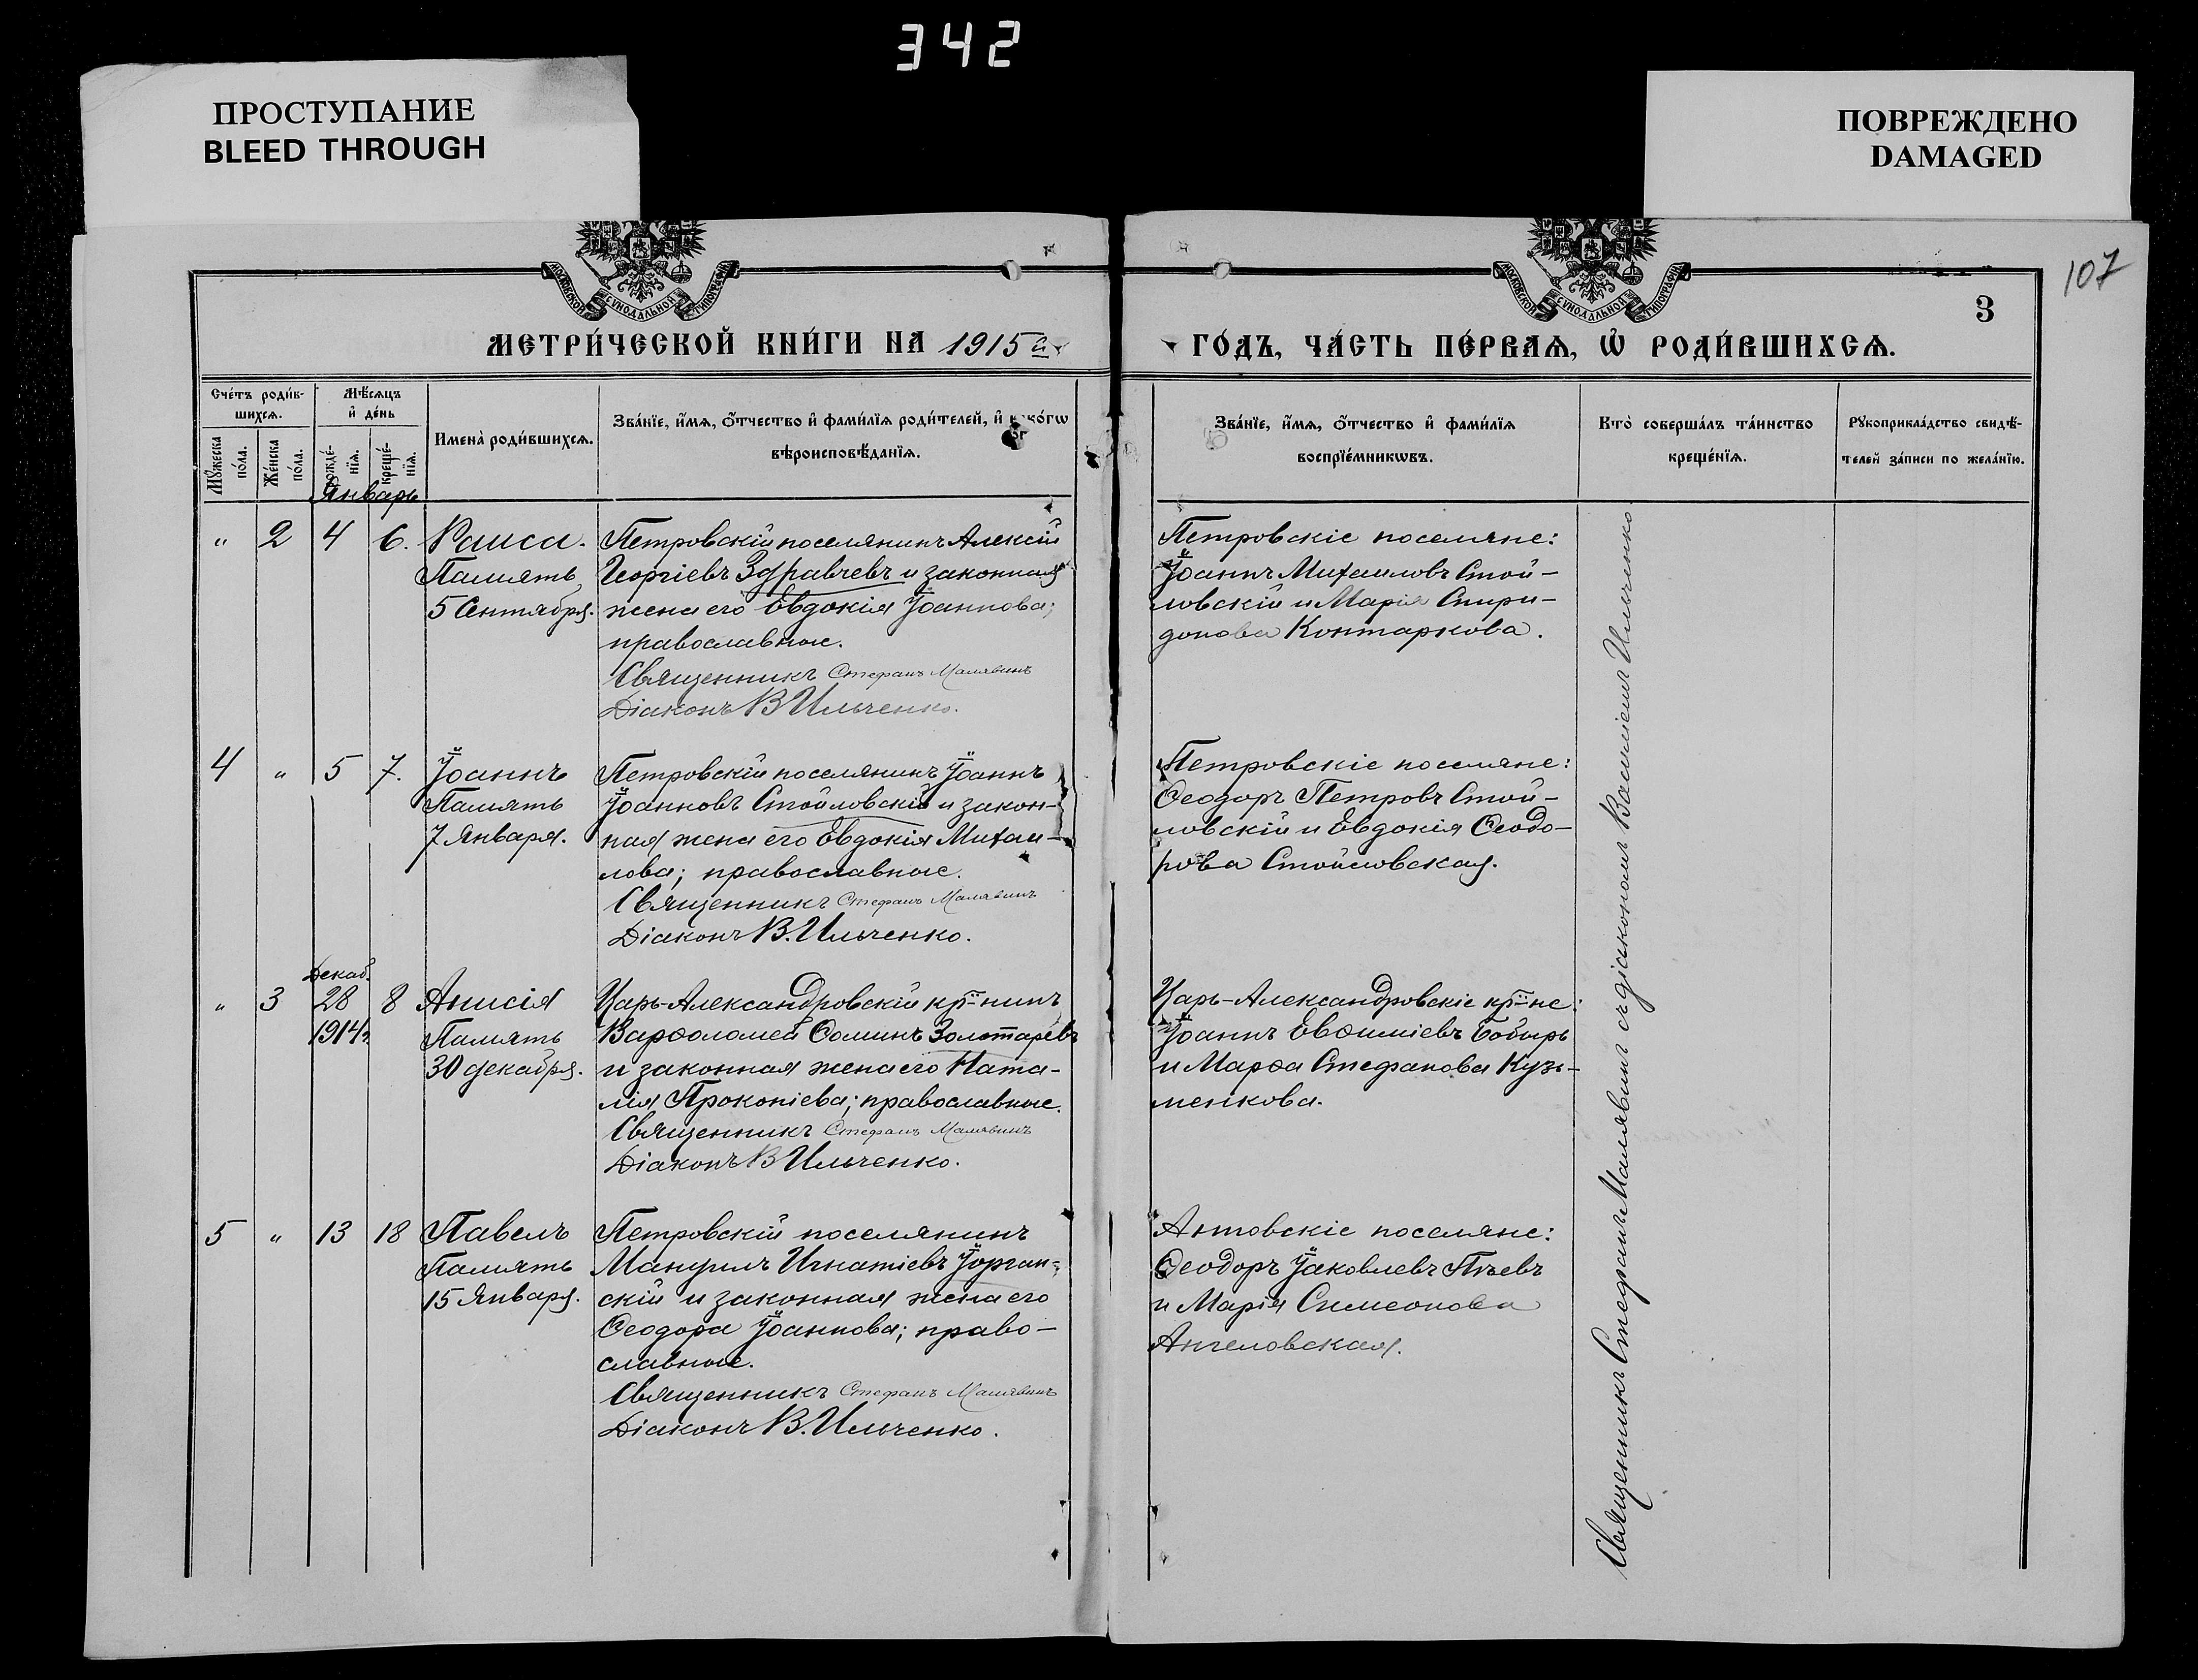 342
ПРОСТУПАНИЕ
BLEED THROUGH
ПОВРЕЖДЕНО
DAMAGED
107
МОСКОВСКОЙ СѴНОДАЛЬНОЙ ТИПОГРАФІИ
МОСКОВСКОЙ СѴНОДАЛЬНОЙ ТИПОГРАФІИ
3
МЕТРИ́ЧЕСКОЙ КНИ́ГИ НА 1915 й
ГО́ДЪ, ЧА́СТЬ ПЕ́РВАѦ, Ѡ҆ РОДИ́ВШИХСѦ.
Сче́тъ роди́в-
шихсѧ.
Мѣ́сѧцъ
и҆ де́нь
Мꙋ́жеска
по́ла.
Же́нска
по́ла.
рожде́-
нїѧ.
креще́-
нїѧ.
Имена̀ роди́вшихсѧ.
Зва́нїе, и҆́мѧ, ѻ҆́тчество и҆ фами́лїѧ роди́телей, и҆ како́гѡ
вѣроисповѣ́данїѧ.
Зва́нїе, и҆́мѧ, ѻ҆́тчество и҆ фами́лїѧ
воспрїе́мникѡвъ.
Кто̀ соверша́лъ та́инство
креще́нїѧ.
Рꙋкоприкла́дство свидѣ́-
телей за́писи по жела́нїю.
Январь
" 2 4 6. Раиса.
Память
5 Сентября.
Петровскій поселянинъ Алексій
Георгіевъ Здравчевъ и законная
жена его Евдокія Іоаннова;
православные.
Священникъ Стефанъ Малявинъ
Діаконъ В Ильченко.
Петровскіе поселяне:
Іоаннъ Михаиловъ Стой-
ловскій и Марія Спири-
донова Контаркова.
4 " 5 7. Іоаннъ
Память
7 Января.
Петровскій поселянинъ Іоаннъ
Іоанновъ Стойловскій и закон-
ная жена его Евдокія Михаи-
лова; православные.
Священникъ Стефанъ Малявинъ
Діаконъ В. Ильченко.
Петровскіе поселяне:
Ѳеодоръ Петровъ Стой-
ловскій и Евдокія Ѳеодо-
рова Стойловская.
Декаб.
" 3 28 8 Анисія
1914 г.
Память
30 декабря.
Царь-Александровскій кр-нинъ
Варѳоломей Ѳоминъ Золотаревъ
и законная жена его Ната-
лія Прокопіева; православные.
Священникъ Стефанъ Малявинъ
Діаконъ В Ильченко.
Царь-Александровскіе кр-не:
Іоаннъ Евѳиміевъ Бобырь
и Марѳа Стефанова Кузь-
менкова.
5 " 13 18 Павелъ
Память
15 Января.
Петровскій поселянинъ
Мануилъ Игнатіевъ Іорган-
скій и законная жена его
Ѳеодора Іоаннова; право-
славные.
Священникъ Стефанъ Малявинъ
Діаконъ В. Ильченко.
поселяне:
Ѳеодоръ Іаковлевъ
и Марія Симеонова
Ангеловская.
Священникъ Стефанъ Малявинъ съ діакономъ Василіемъ Ильченко